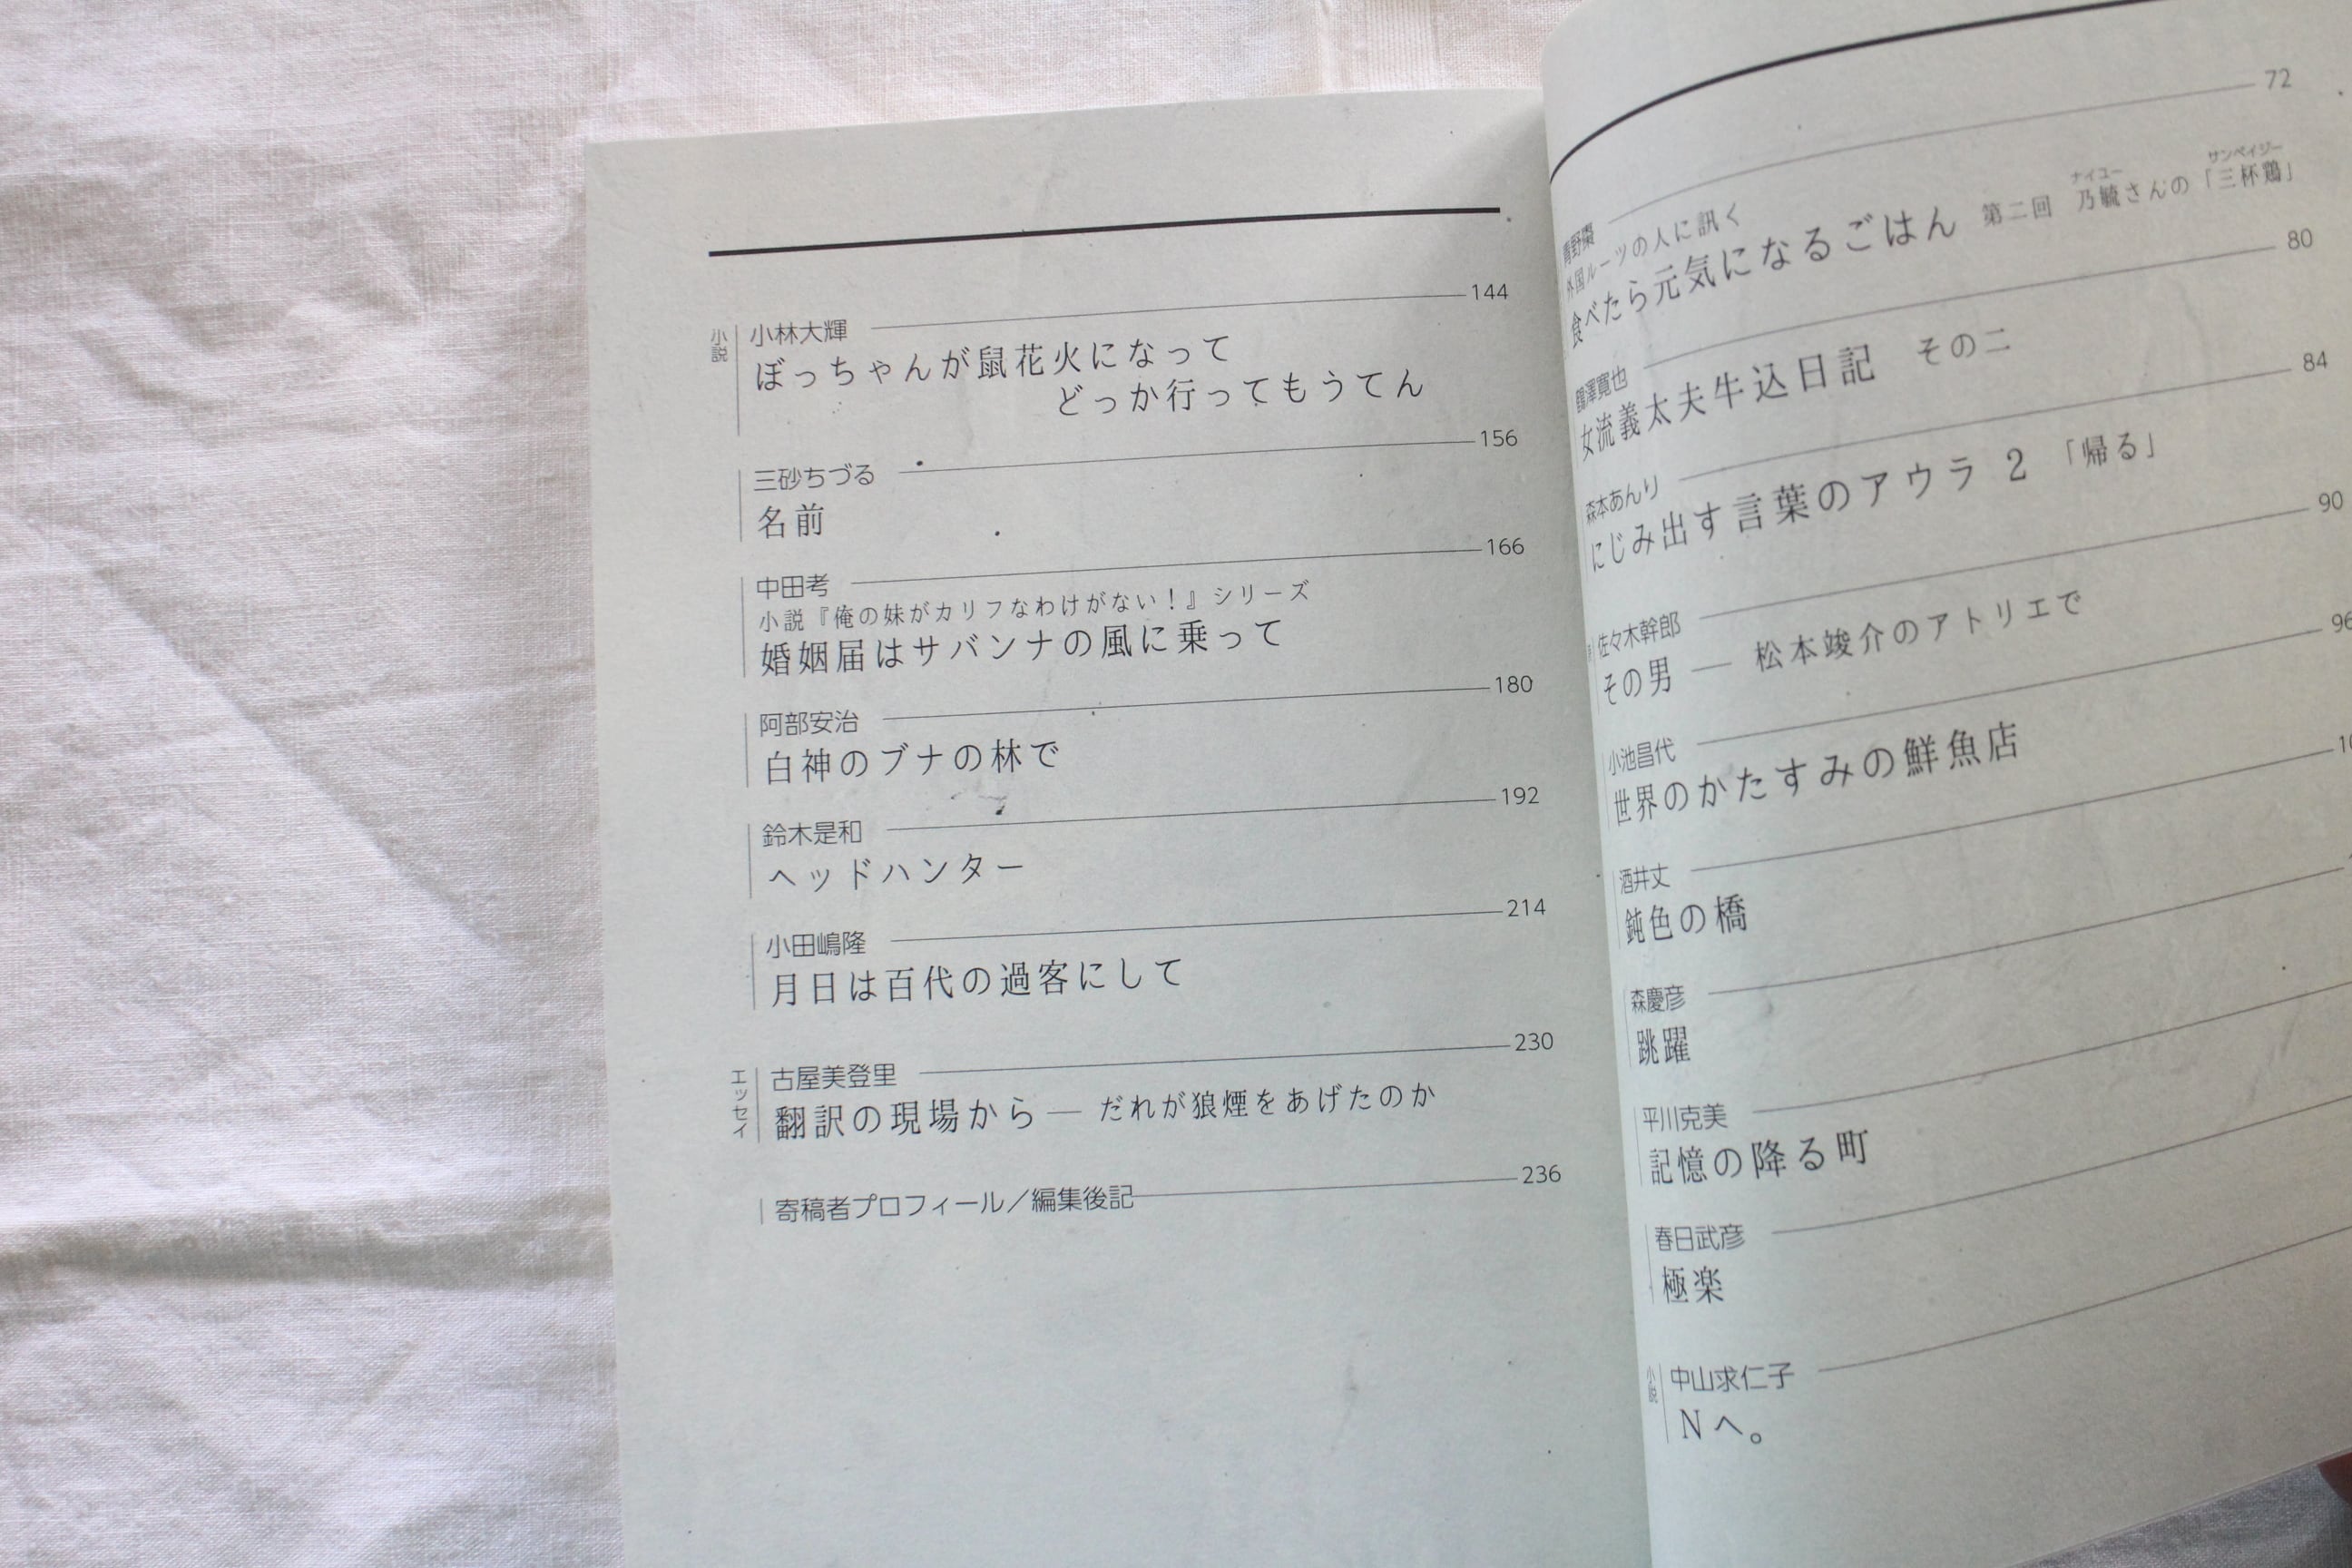 144
小説
小林大輝
ぼっちゃんが鼠花火になって
どっか行ってもうてん
156
三砂ちづる
名前
166
中田考
小説『俺の妹がカリフなわけがない！』シリーズ
婚姻届はサバンナの風に乗って
180
阿部安治
白神のブナの林で
192
鈴木是和
ヘッドハンター
214
小田嶋隆
月日は百代の過客にして
230
エッセイ
古屋美登里
翻訳の現場から — だれが狼煙をあげたのか
236
寄稿者プロフィール／編集後記
72
青野棗
外国ルーツの人に訊く
食べたら元気になるごはん 第二回 乃毓さんの「三杯鶏」
ナイユー
サンベイジー
80
鶴澤寛也
女流義太夫牛込日記 その二
84
森本あんり
にじみ出す言葉のアウラ 2 「帰る」
90
佐々木幹郎
その男 — 松本竣介のアトリエで
96
小池昌代
世界のかたすみの鮮魚店
酒井丈
鈍色の橋
森慶彦
跳躍
平川克美
記憶の降る町
春日武彦
極楽
小説
中山求仁子
Nへ。